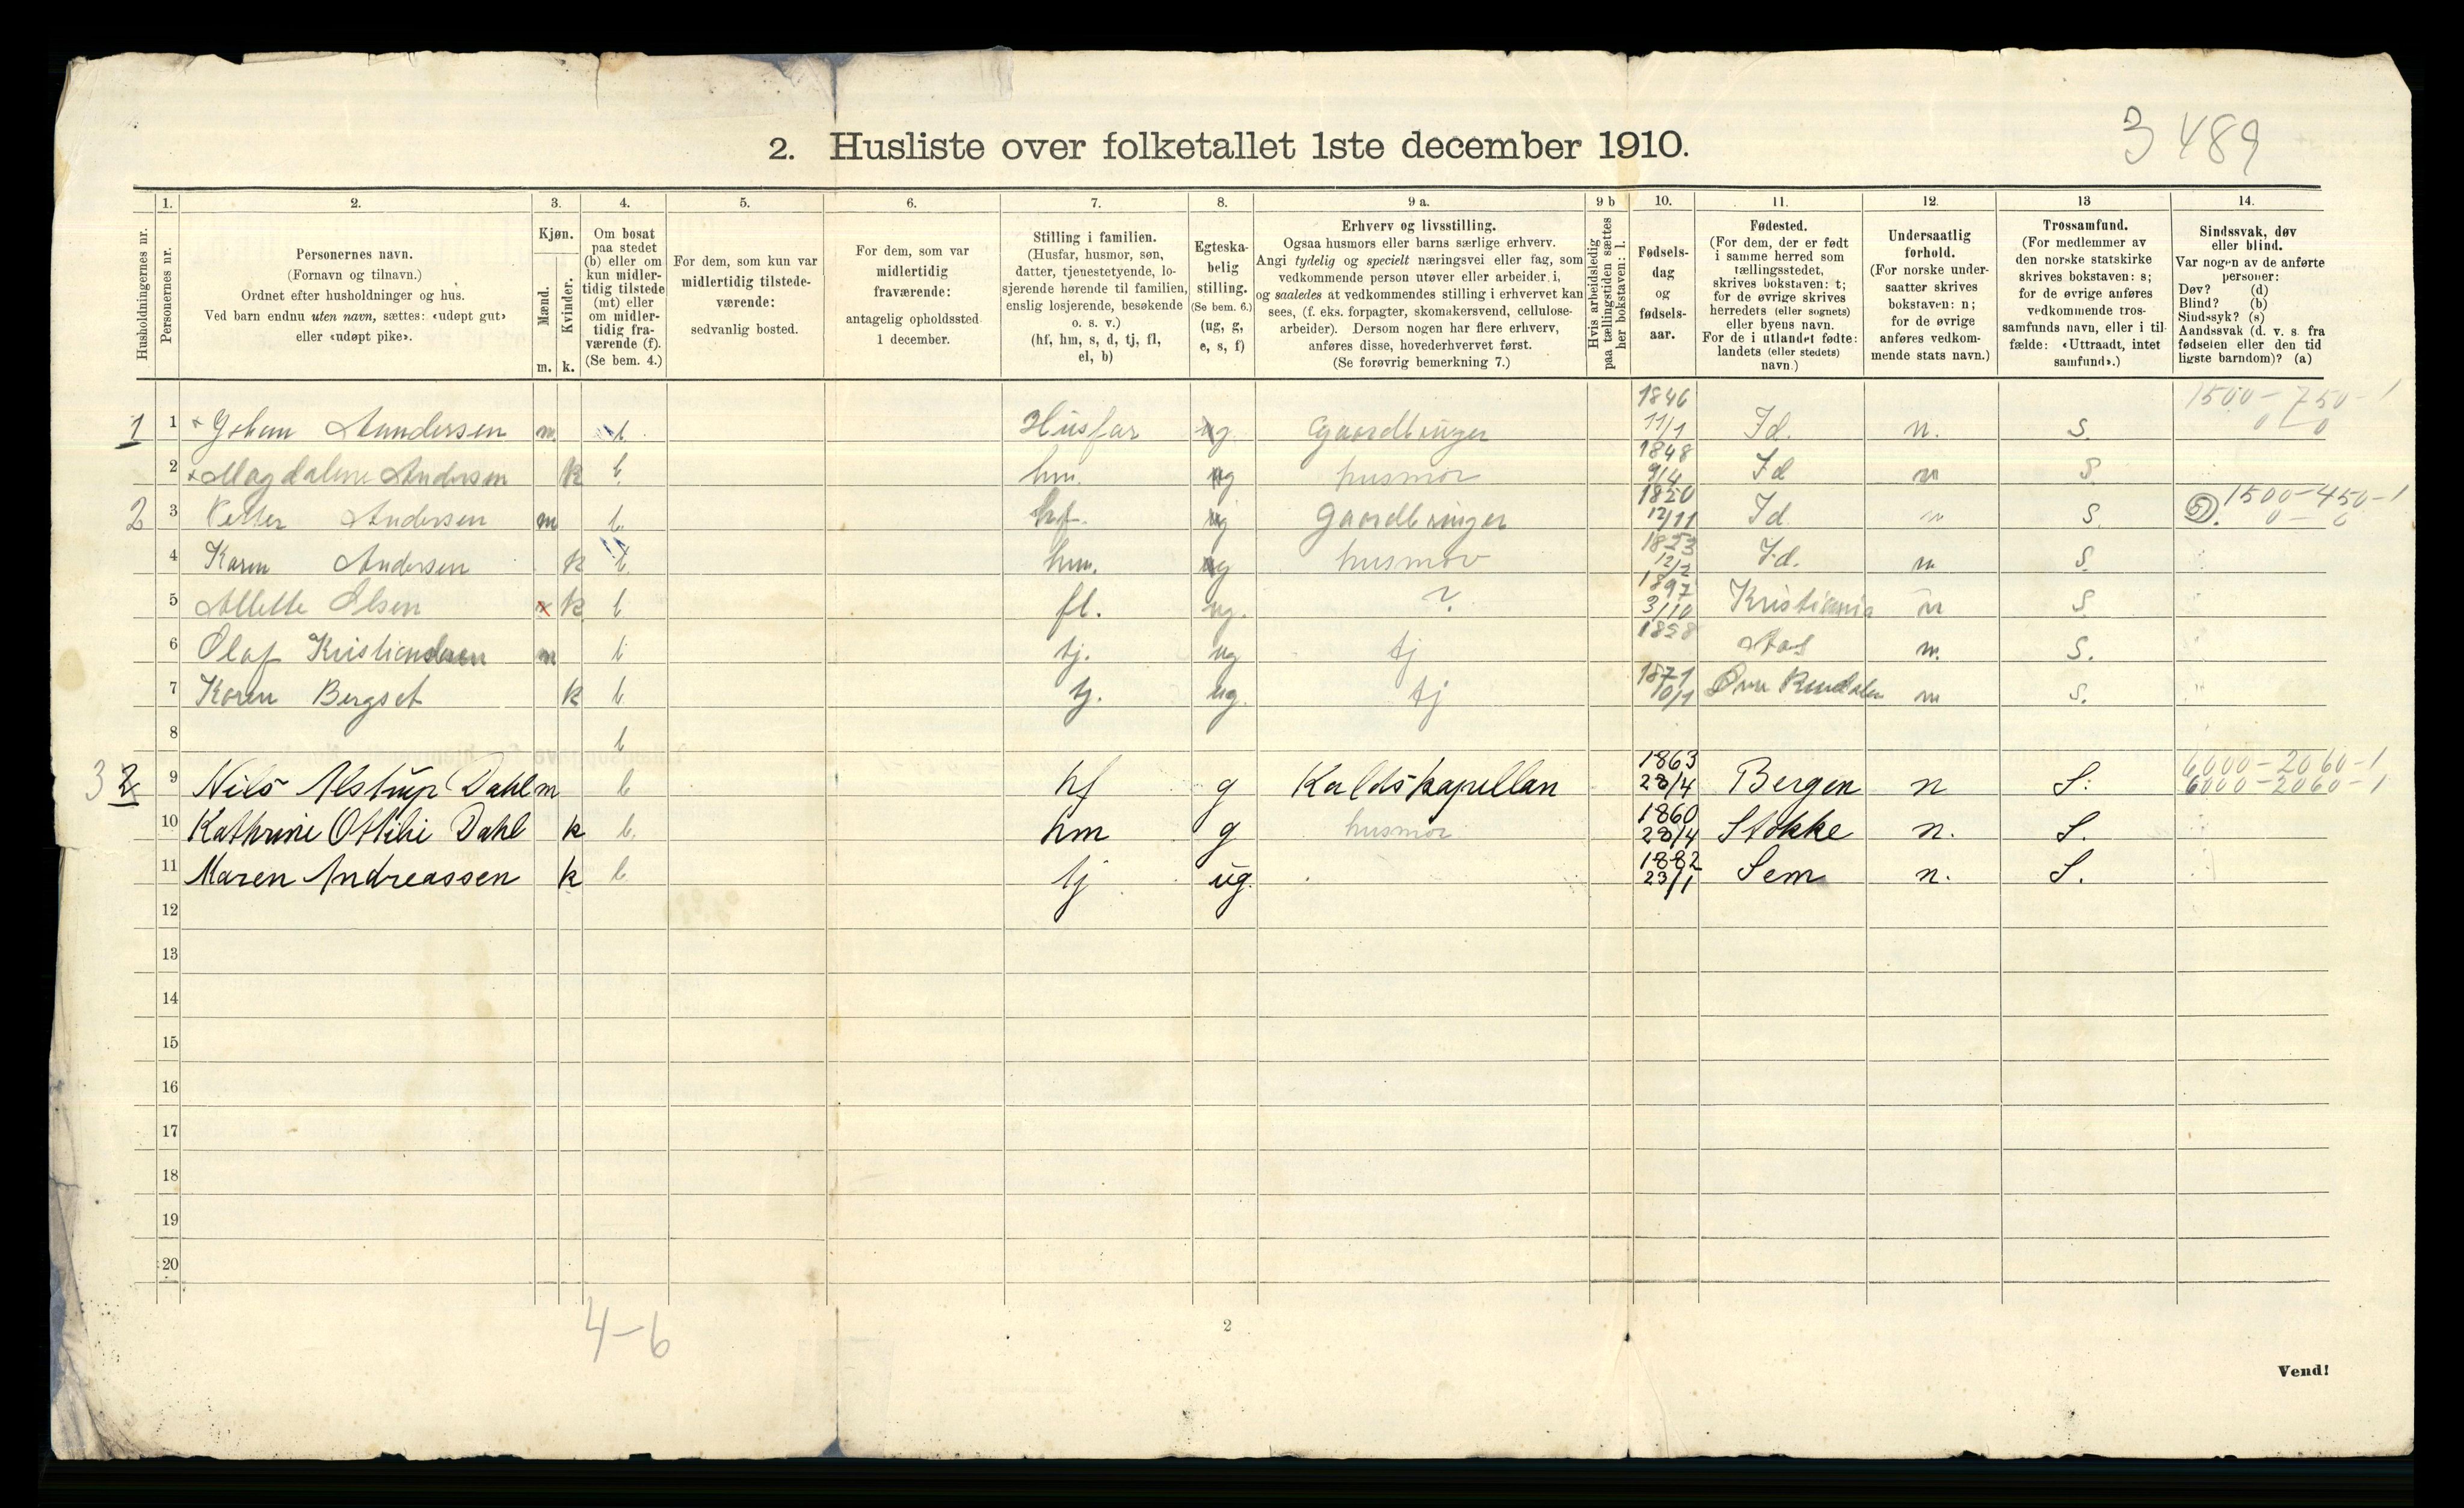 3 489
2. Husliste over folketallet 1ste december 1910.
1. 2. 3. 4. 5. 6. 7. 8. 9 a. 9 b 10. 11. 12. 13 14.
Husholdningernes nr.
Personernes nr.
Personernes navn.
(Fornavn og tilnavn.)
Ordnet efter husholdninger og hus.
Ved barn endnu uten navn, sættes: «udøpt gut»
eller «udøpt pike».
Kjøn.
Mænd.
Kvinder.
m. k.
Om bosat
paa stedet
(b) eller om
kun midler-
tidig tilstede
(mt) eller
om midler-
tidig fra-
værende (f).
(Se bem. 4.)
For dem, som kun var
midlertidig tilstede-
værende:
sedvanlig bosted.
For dem, som var
midlertidig
fraværende:
antagelig opholdssted
1 december.
Stilling i familien.
(Husfar, husmor, søn,
datter, tjenestetyende, lo-
sjerende hørende til familien,
enslig losjerende, besøkende
o. s. v.)
(hf, hm, s, d, tj, fl,
el, b)
Egteska-
belig
stilling.
(Se bem. 6.)
(ug, g,
e, s, f)
Erhverv og livsstilling.
Ogsaa husmors eller barns særlige erhverv.
Angi tydelig og specielt næringsvei eller fag, som
vedkommende person utøver eller arbeider i,
og saaledes at vedkommendes stilling i erhvervet kan
sees, (f. eks. forpagter, skomakersvend, cellulose-
arbeider). Dersom nogen har flere erhverv,
anføres disse, hovederhvervet først.
(Se forøvrig bemerkning 7.)
Hvis arbeidsledig
paa tællingstiden sættes
her bokstaven: l.
Fødsels-
dag
og
fødsels-
aar.
Fødested.
(For dem, der er født
i samme herred som
tællingsstedet,
skrives bokstaven: t;
for de øvrige skrives
herredets (eller sognets)
eller byens navn.
For de i utlandet fødte:
landets (eller stedets)
navn.)
Undersaatlig
forhold.
(For norske under-
saatter skrives
bokstaven: n;
for de øvrige
anføres vedkom-
mende stats navn.)
Trossamfund.
(For medlemmer av
den norske statskirke
skrives bokstaven: s;
for de øvrige anføres
vedkommende tros-
samfunds navn, eller i til-
fælde: «Uttraadt, intet
samfund».)
Sindssvak, døv
eller blind.
Var nogen av de anførte
personer:
Døv? (d)
Blind? (b)
Sindssyk? (s)
Aandssvak (d. v. s. fra
fødselen eller den tid-
ligste barndom)? (a)
1846 1500 - 750 - 1
1 1 Johan Aundersen m b. Husfar g Gaardbruger 11/1 Id. n. S. 0 - 0
1848
2 Magdalene Andersen k b. hm. g husmor 9/4 Id n S
1820 1500 - 450 - 1
2 3 Petter Andersen m b. hf. g gaardbruger 12/11 Id n S. 0 - 0
1823
4 Karen Andersen k b. hm. g husmor 12/2 Id. n S.
1897
5 Allette Olsen k b fl. ug. ? 3/10 Kristiania n S
1858
6 Olaf Kristiansen m b tj. ug tj n. S.
1871
7 Karen Bergset k b tj. ug. tj 10/1 Øvre Rendalen n S.
8 b
1863 6000 - 2060 - 1
3 2 9 Nils Alstrup Dahl m b hf g Kaldskapellan 28/4 Bergen n S. 6000 - 2060 - 1
1860
10 Kathrine Ottilie Dahl k b. hm g husmor 28/4 Stokke n. S.
1882
11 Maren Andreassen k b tj ug. 23/1 Sem n. S.
12
13
14
15
16
17
18
19
20
4-6
2
Vend!